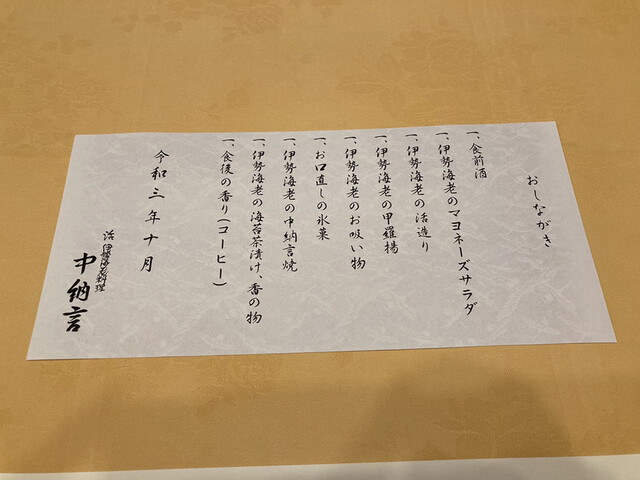 おしながき
一、食前酒
一、伊勢海老のマヨネーズサラダ
一、伊勢海老の活造り
一、伊勢海老の甲羅揚
一、伊勢海老のお吸い物
一、お口直しの氷菓
一、伊勢海老の中納言焼
一、伊勢海老の海苔茶漬け、香の物
一、食後の香り(コーヒー)
令和三年十月
活伊勢海老料理
中納言